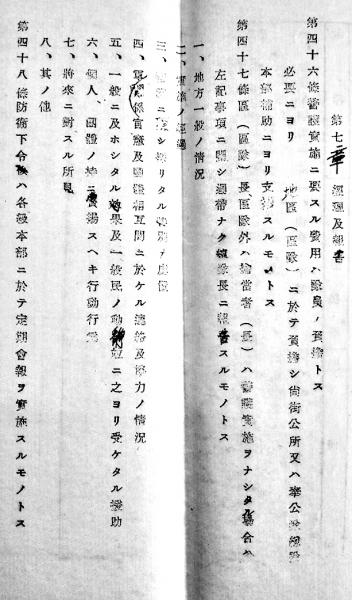 第七章 經理及報書
第四十六條警護實施ニ要スル費用ハ隊員ノ負擔トス
必要ニヨリ 地區(區隊)ニ於テ負擔シ尙街公所又ハ奉公隊
本部補助ニヨリ支スルモノトス
第四十七條區(區隊)長區隊外ハ擔當者(長)ハ警護實施ヲナシタル場合ハ
左記事項ニ關シ遲滯ナク隊長ニ報書スルモノトス
一、地方一般ノ情況
二、實施ノ
三、
四、官廳及相互間ニ於ケル連絡及協力ノ情況
五、一般ニ及ホシタル效果及一般民ノ動ニ之ヨリ受ケタル援助
六、個人、團體ノ特ニスヘキ行動行
七、將來ニ對スル所見
八、其ノ他
第四十八條防衞下令後ハ各級本部ニ於テ定期會報ヲ實施スルモノトス